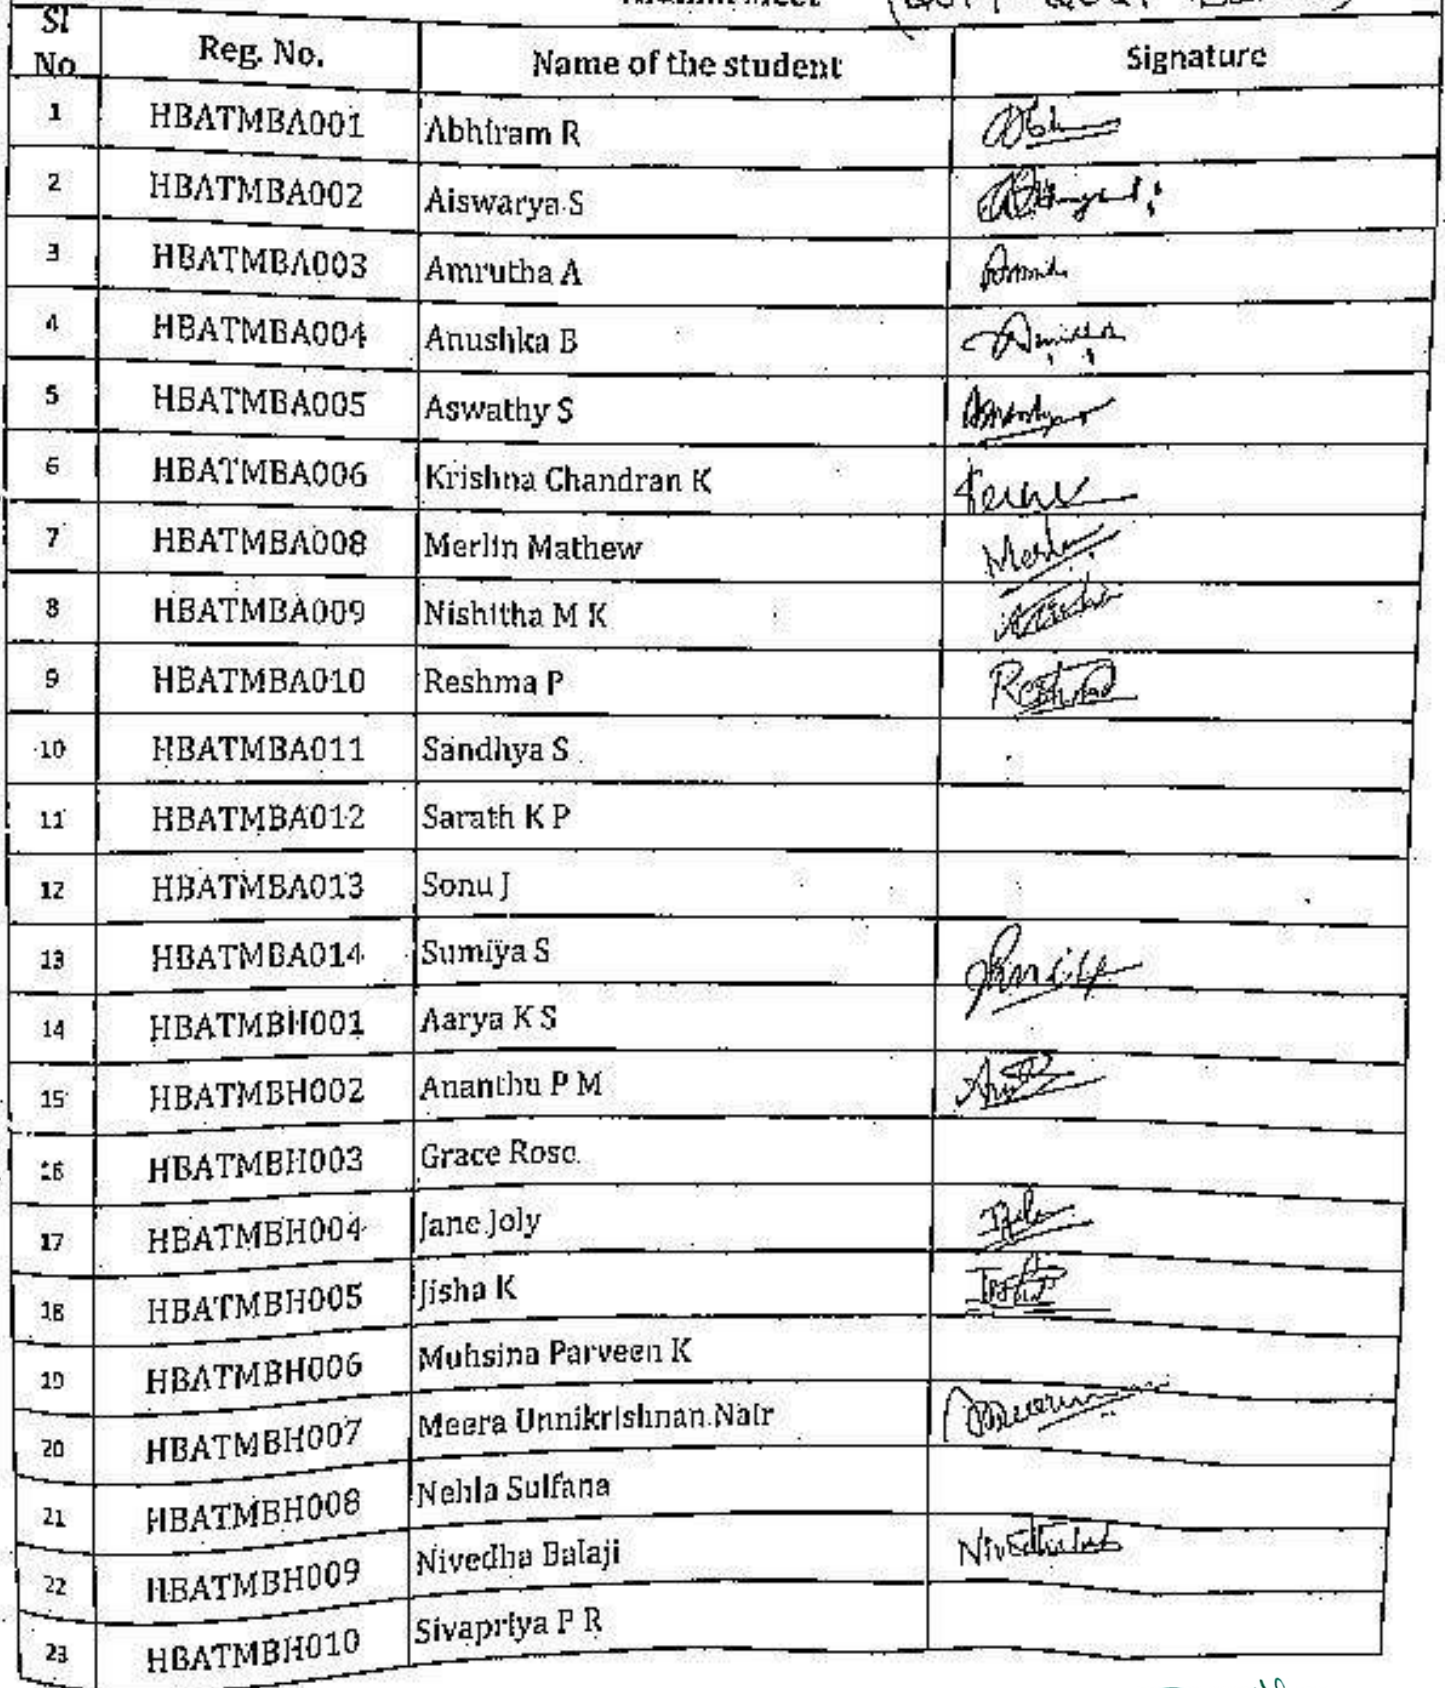 Alumni Meet
Sl No Reg. No. Name of the student Signature
1 HBATMBA001 Abhiram R
2 HBATMBA002 Aiswarya S
3 HBATMBA003 Amrutha A
4 HBATMBA004 Anushka B
5 HBATMBA005 Aswathy S
6 HBATMBA006 Krishna Chandran K
7 HBATMBA008 Merlin Mathew
8 HBATMBA009 Nishitha M K
9 HBATMBA010 Reshma P
10 HBATMBA011 Sandhya S
11 HBATMBA012 Sarath K P
12 HBATMBA013 Sonu J
13 HBATMBA014 Sumiya S
14 HBATMBH001 Aarya K S
15 HBATMBH002 Ananthu P M
16 HBATMBH003 Grace Rose
17 HBATMBH004 Jane Joly
18 HBATMBH005 Jisha K
19 HBATMBH006 Muhsina Parveen K
20 HBATMBH007 Meera Unnikrishnan Nair
21 HBATMBH008 Nehla Sulfana
22 HBATMBH009 Nivedha Balaji
23 HBATMBH010 Sivapriya P R